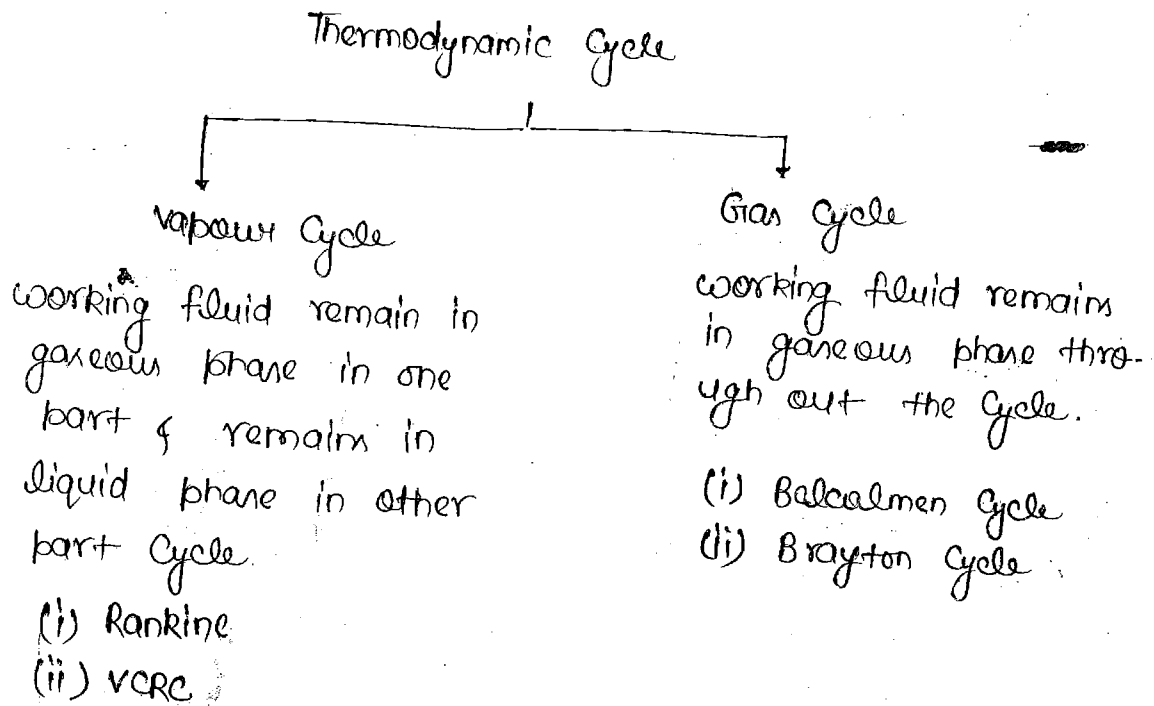 Thermodynamic Cycle
Vapour Cycle
working fluid remain in
gaseous phase in one
part & remains in
liquid phase in other
part Cycle.
(i) Rankine
(ii) VCRC
Gas Cycle
working fluid remains
in gaseous phase thro-
ugh out the Cycle.
(i) Balcalmen Cycle
(ii) Brayton Cycle